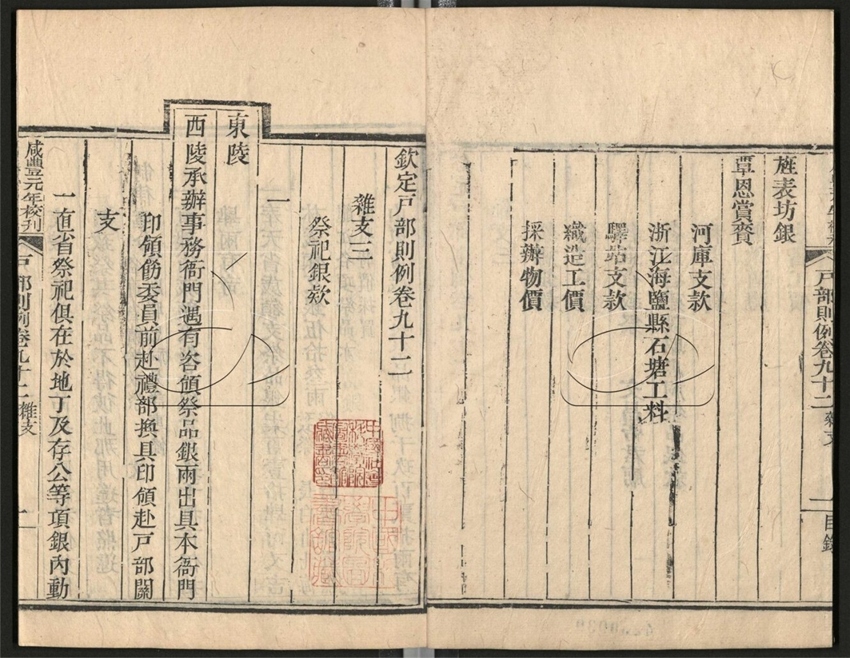 戶部則例卷九十二 雜支 一 目錄
旌表坊銀
覃恩賞賚
河庫支款
浙江海鹽縣石塘工料
驛站支款
織造工價
採辦物價
欽定戶部則例卷九十二
雜支三
祭祀銀款
一
東陵
西陵承辦事務衙門遇有咨領祭品銀兩出具本衙門
印領飭委員前赴禮部換具印領赴戶部關
支
一直省祭祀俱在於地丁及存公等項銀內動
咸豐元年校刊 戶部則例卷九十二 雜支 一